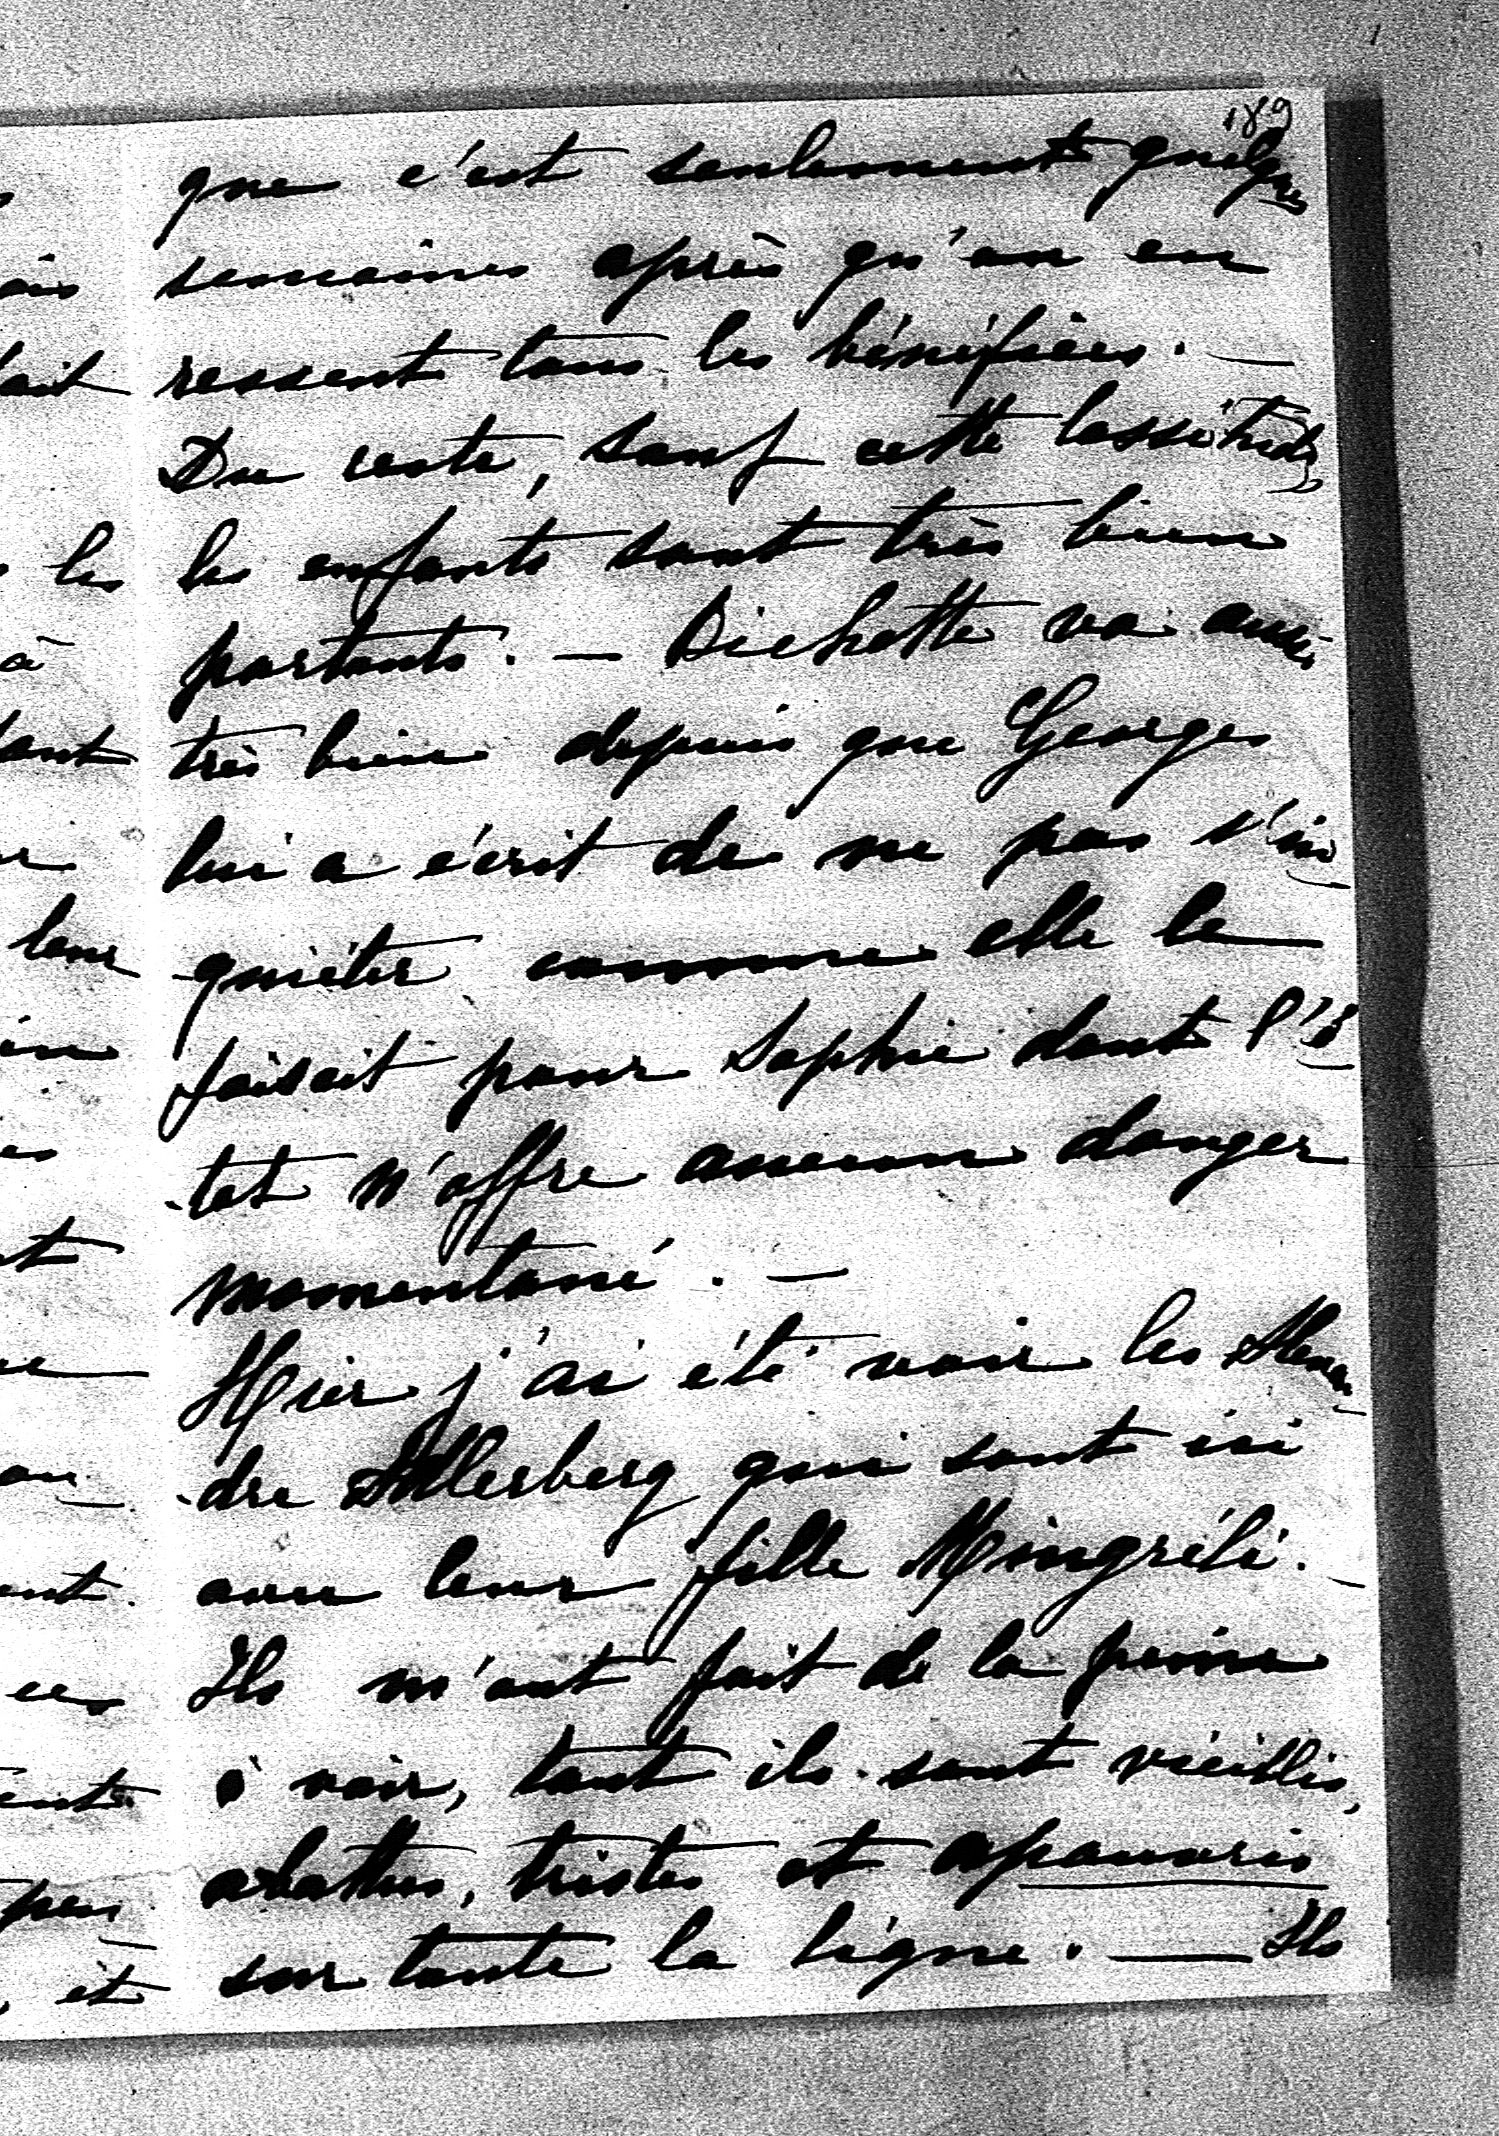 189
que c'est seulement quelques
semaines après qu'on en
ressent tous les bénéfices. —
Du reste, sauf cette lassitude,
les enfants sont très bien
portants. — Bichette va aussi
très bien depuis que Georges
lui a écrit de ne pas s'in
quiéter comme elle le
faisait pour Sophie dont l'é
-tat n'offre aucun danger
momentané. —
Hier j'ai été voir les Alexan
-dre Adlerberg qui sont ici
avec leur fille Mingréli. —
Ils m'ont fait de la peine
à voir, tant ils sont vieillis,
abattus, tristes et apauvris
sur toute la ligne. — Ils
ais
les
à
leur
peu
, et